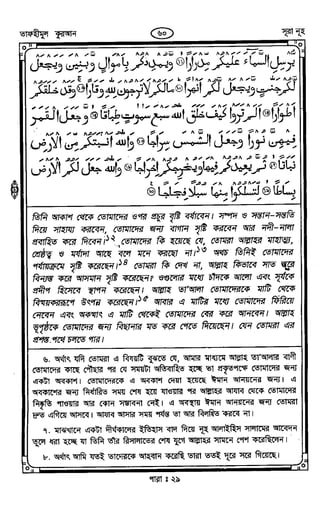 তাফহীমুল কুরআন
৬০
সূরা নূহ
يرسل السماء عليكم مدرارا ⑪ ويمددكم باموال وبنين ويجعل
لكم جنت ويجعل لكم انهرا ⑫ مالكم لا ترجون لله وقارا ⑬ وقد خلقكم
اطوارا ⑭ الم تروا كيف خلق الله سبع سموت طباقا ⑮ وجعل القمر
فيهن نورا وجعل الشمس سراجا ⑯ والله انبتكم من الارض
نباتا ⑰ ثم يعيدكم فيها ويخرجكم اخراجا ⑱ والله جعل لكم الارض
بساطا ⑲ لتسلكوا منها سبلا فجاجا ⑳
তিনি আকাশ থেকে তোমাদের ওপর প্রচুর বৃষ্টি বর্ষাবেন। সম্পদ ও সন্তান-সন্ততি
দিয়ে সাহায্য করবেন, তোমাদের জন্য বাগান সৃষ্টি করবেন আর নদী-নালা
প্রবাহিত করে দিবেন।১২ তোমাদের কি হয়েছে যে, তোমরা আল্লাহর মাহাত্ম্য,
শ্রেষ্ঠত্ব ও মর্যাদা আছে বলে মনে করছো না।১৩ অথচ তিনিই তোমাদের
পর্যায়ক্রমে সৃষ্টি করেছেন।১৪ তোমরা কি দেখ না, আল্লাহ কিভাবে সাত স্তরে
বিন্যস্ত করে আসমান সৃষ্টি করেছেন? ওগুলোর মধ্যে চাঁদকে আলো এবং সূর্যকে
প্রদীপ হিসেবে স্থাপন করেছেন। আল্লাহ তা'আলা তোমাদেরকে মাটি থেকে
বিস্ময়কররূপে উৎপন্ন করেছেন।১৫ আবার এ মাটির মধ্যে তোমাদের ফিরিয়ে
নেবেন এবং অকস্মাৎ এ মাটি থেকেই তোমাদের বের করে আনবেন। আল্লাহ
ভূপৃষ্ঠকে তোমাদের জন্য বিছানার মত করে পেতে দিয়েছেন। যেন তোমরা এর
প্রশস্ত পথে চলতে পার।
৬. অর্থাৎ যদি তোমরা এ বিষয়টি বুঝতে যে, আমার মাধ্যমে আল্লাহ তা'আলার বাণী
তোমাদের কাছে পৌঁছার পর যে সময়টা অতিবাহিত হচ্ছে তা প্রকৃতপক্ষে তোমাদের জন্য
একটা অবকাশ। তোমাদেরকে এ অবকাশ দেয়া হয়েছে ঈমান আনয়নের জন্য। এ
অবকাশের জন্য নির্ধারিত সময় শেষ হয়ে যাওয়ার পর আল্লাহর আযাব থেকে তোমাদের
নিষ্কৃতি পাওয়ার আর কোন সম্ভাবনা নেই। এ অবস্থায় ঈমান আনয়নের জন্য তোমরা
দ্রুত এগিয়ে আসবে। আযাব আসার সময় পর্যন্ত তা আর বিলম্বিত করবে না।
৭. মাঝখানে একটা দীর্ঘকালের ইতিহাস বাদ দিয়ে নূহ আলাইহিস সালামের আবেদন
তুলে ধরা হচ্ছে যা তিনি তাঁর রিসালাতের শেষ যুগে আল্লাহর সামনে পেশ করেছিলেন।
৮. অর্থাৎ আমি যতই তাদেরকে আহবান করেছি তারা ততই দূরে সরে গিয়েছে।
পারা : ২৯